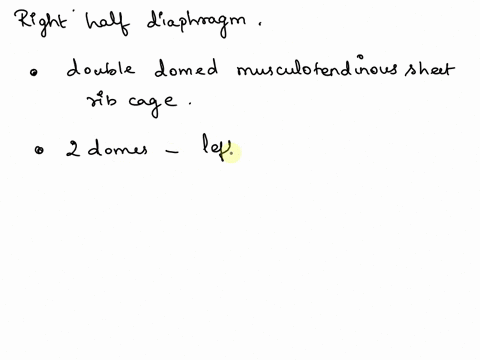 Right half diaphragm.
• double domed musculotendinous sheet
rib cage.
• 2 domes – lef